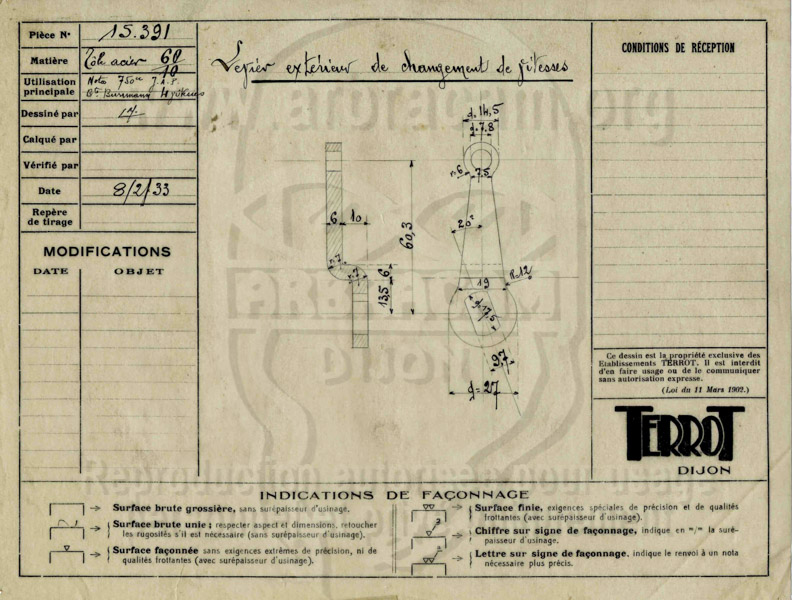 Pièce N° 15.391
Matière Tôle acier 60/10
Utilisation principale Moto 750cc
Dessiné par
Calqué par
Vérifié par
Date 8/2/33
Repère de tirage
MODIFICATIONS
DATE OBJET
Levier extérieur de changement de vitesses
d.14,5
d.7.8
r.6
7.5
6
10
60,3
20°
r.7
r.7
6
13,5
19
R.12
d.17,5
9,7
d=27
CONDITIONS DE RÉCEPTION
Ce dessin est la propriété exclusive des
Etablissements TERROT. Il est interdit
d'en faire usage ou de le communiquer
sans autorisation expresse.
(Loi du 11 Mars 1902.)
TERROT
DIJON
INDICATIONS DE FAÇONNAGE
Surface brute grossière, sans surépaisseur d'usinage.
Surface brute unie ; respecter aspect et dimensions, retoucher
les rugosités s'il est nécessaire (sans surépaisseur d'usinage).
Surface façonnée sans exigences extrêmes de précision, ni de
qualités frottantes (avec surépaisseur d'usinage).
Surface finie, exigences spéciales de précision et de qualités
frottantes (avec surépaisseur d'usinage).
Chiffre sur signe de façonnage, indique en m/m la suré-
paisseur d'usinage.
Lettre sur signe de façonnage, indique le renvoi à un nota
nécessaire plus précis.